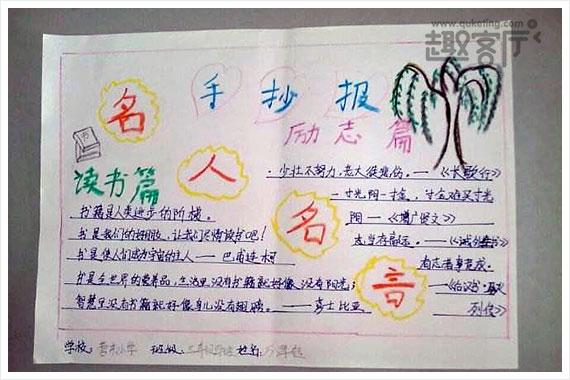 www.quketing.com
趣客厅
手抄报
励志篇
名人名言
读书篇
书籍是人类进步的阶梯。
书是我们的好朋友，让我们尽情读书吧！
书是使人们成为宇宙的主人——巴甫连柯
书是全世界的营养品，生活里没有书籍就好像没有阳光；
智慧里没有书籍就好像鸟儿没有翅膀。——莎士比亚
·少壮不努力，老大徒悲伤。——《长歌行》
一寸光阴一寸金，寸金难买寸光
阴——《增广贤文》
志当存高远。——《诫外甥书》
有志者事竟成。
——《后汉书·
列传》
学校：小学 班级：三年级 姓名：